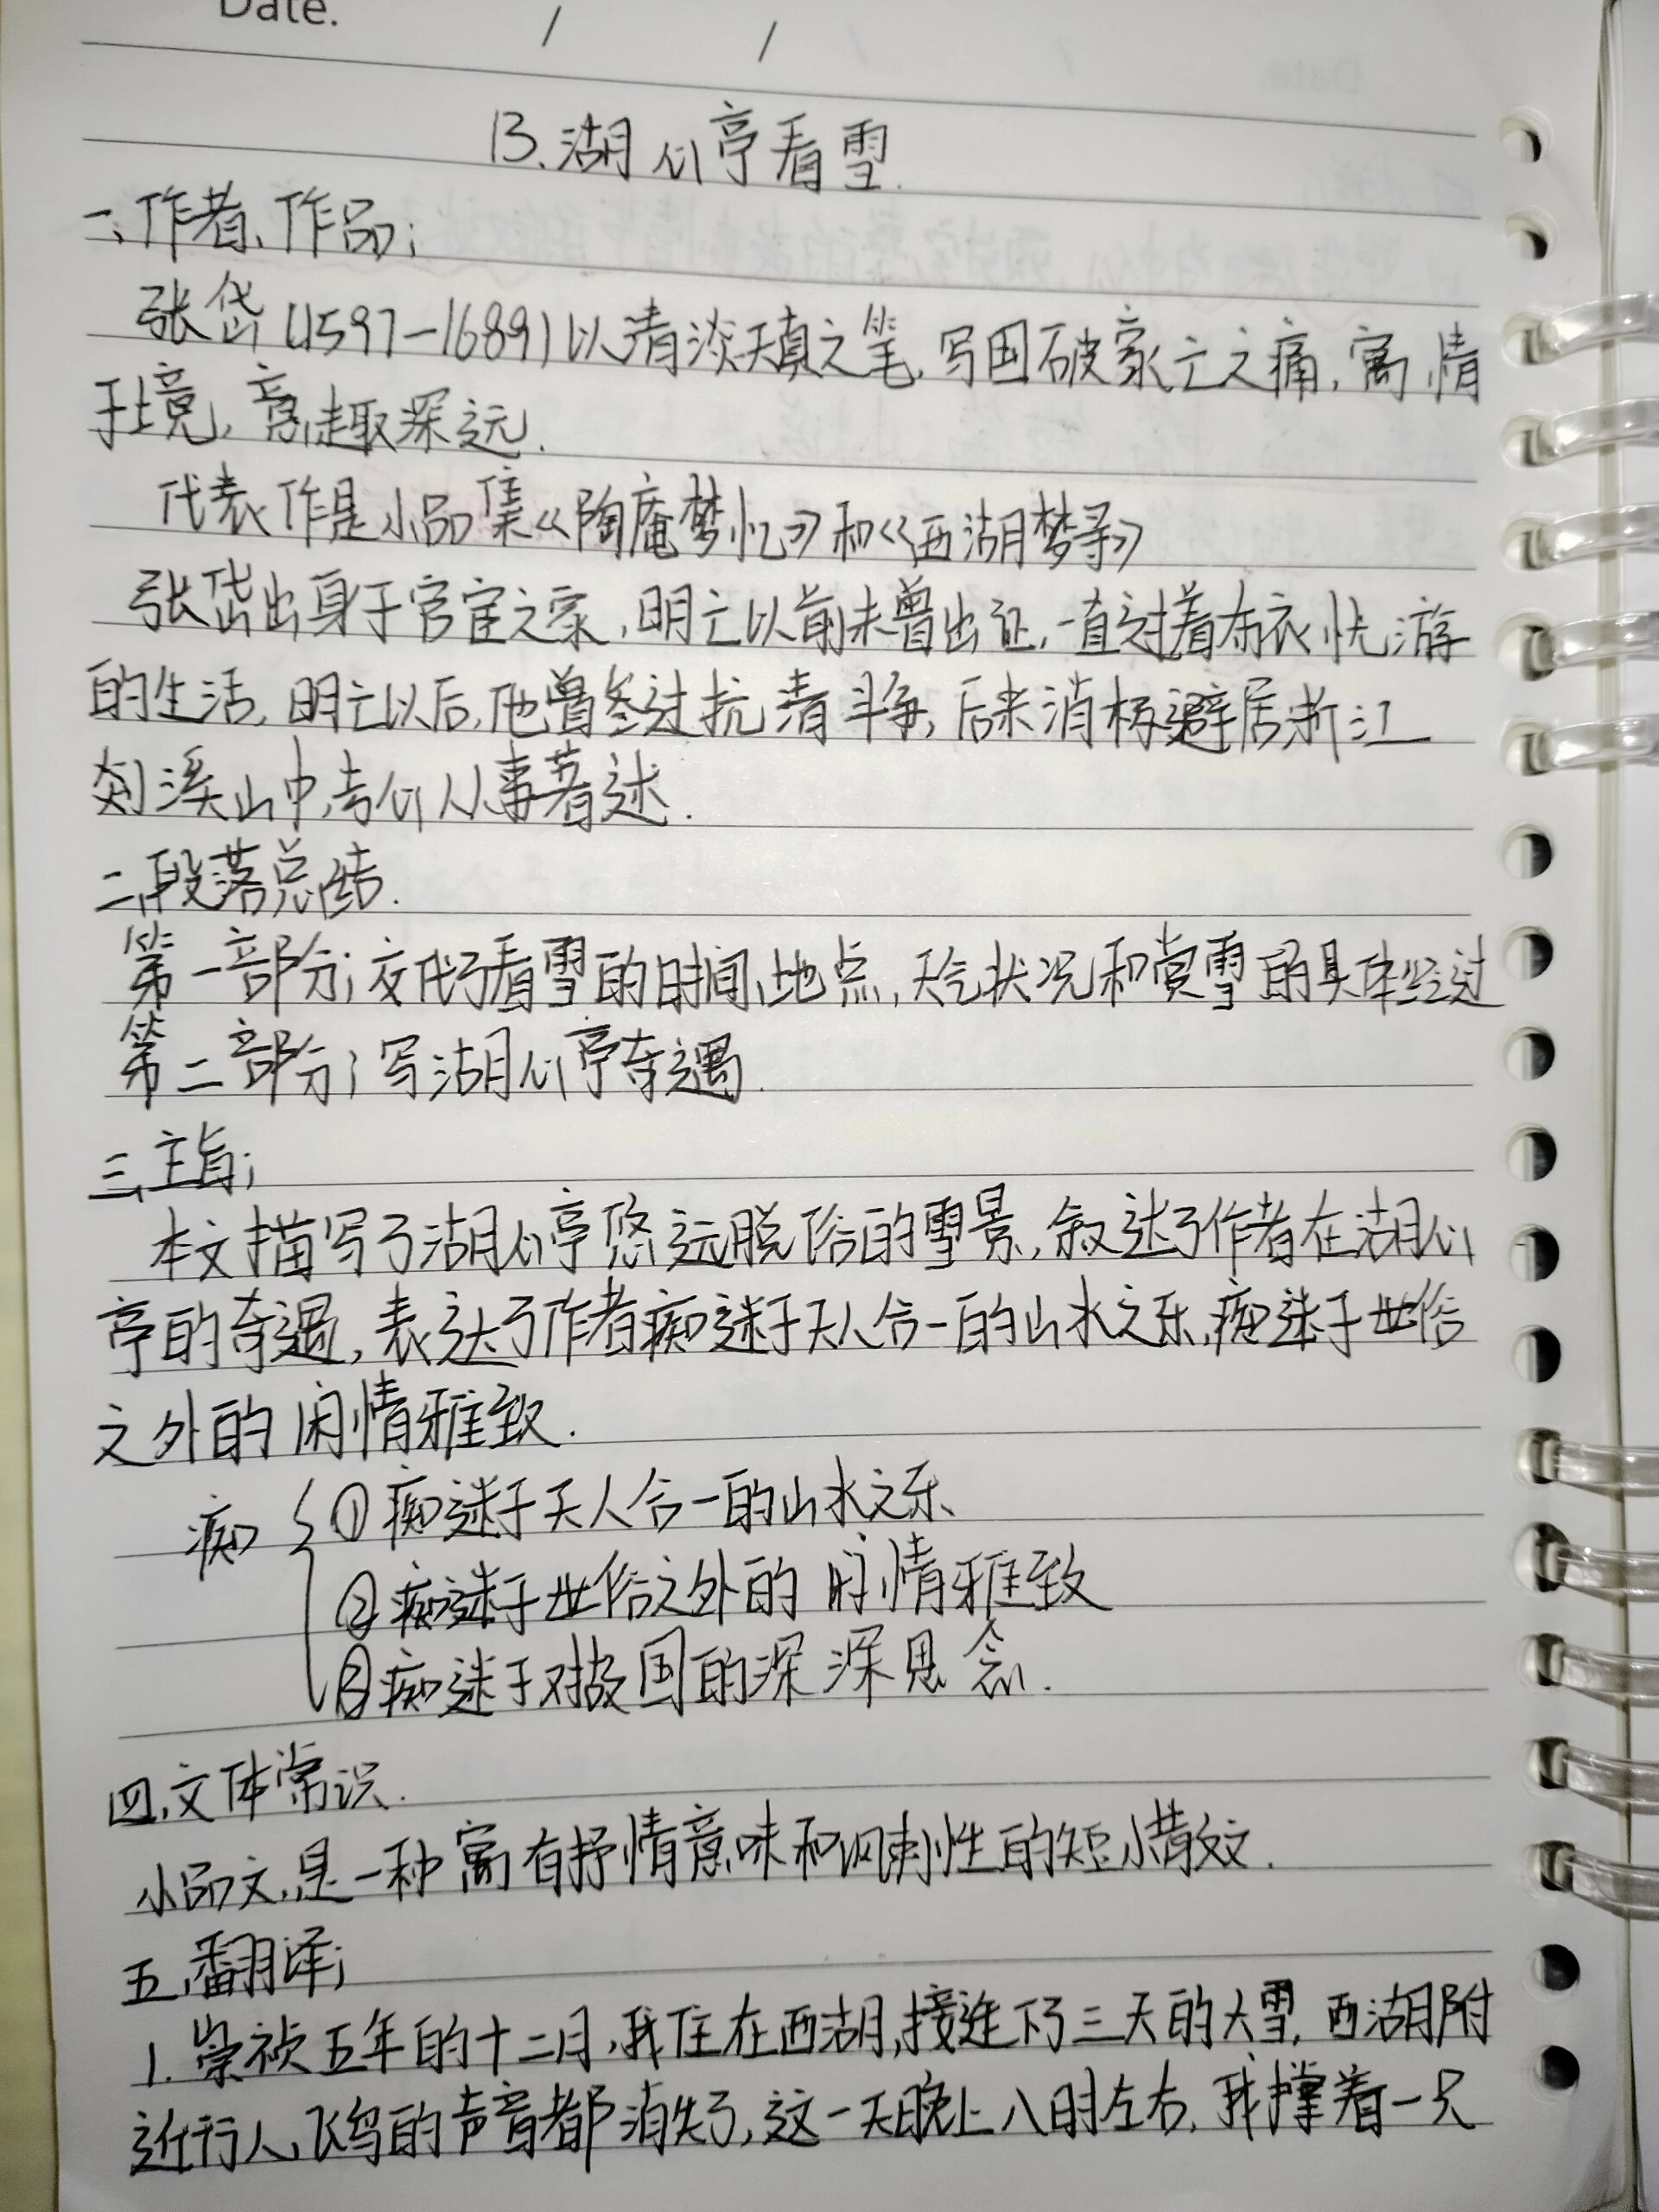 Date.
13、湖心亭看雪.
一、作者、作品;
张岱(1597-1689)以清淡天真之笔,写国破家亡之痛,寓情
于境,意趣深远.
代表作是小品集《陶庵梦忆》和《西湖梦寻》
张岱出身于官宦之家,明亡以前未曾出证,一直过着布衣优游
的生活,明亡以后,他曾参过抗清斗争,后来消极避居浙江
剡溪山中,专心从事著述.
二,段落总结.
第一部分;交代了看雪的时间、地点,天气状况和赏雪的具体经过
第二部分;写湖心亭奇遇.
三,主旨;
本文描写了湖心亭悠远脱俗的雪景,叙述了作者在湖心
亭的奇遇,表达了作者痴迷于天人合一的山水之乐,痴迷于世俗
之外的闲情雅致.
痴 ①痴迷于天人合一的山水之乐
②痴迷于世俗之外的 情雅致
③痴迷于对故国的深深思念.
四,文体常识.
小品文,是一种富有抒情意味和讽刺性的短小散文.
五,翻译;
1.崇祯五年的十二月,我住在西湖,接连下了三天的大雪,西湖附
近行人、飞鸟的声音都消失了,这一天晚上八时左右,我撑着一只